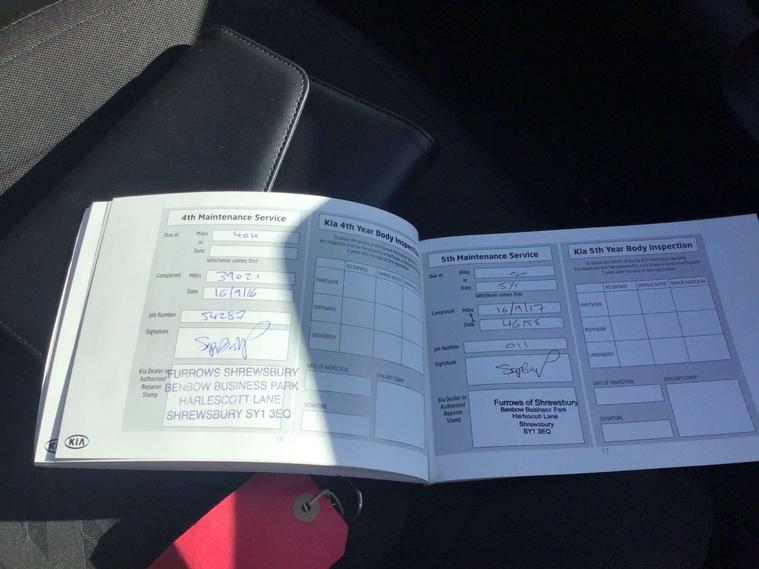 4th Maintenance Service
Due at Miles 40K
or
Date
whichever comes first
Completed Miles 39021
Date 16/9/16
Job Number 54287
Signature
Kia Dealer or
Authorised
Repairer
Stamp
FURROWS SHREWSBURY
BENBOW BUSINESS PARK
HARLESCOTT LANE
SHREWSBURY SY1 3EQ
KIA
16
Kia 4th Year Body Inspection
NO DAMAGE
PAINTWORK
BODYWORK
UNDERBODY
DATE OF INSPECTION
DEALER'S STAMP
SIGNATURE
5th Maintenance Service
Due at Miles
or
Date 5yr
whichever comes first
Completed Miles 16/9/17
Date
Job Number 011
Signature
Kia Dealer or
Authorised
Repairer
Stamp
Furrows of Shrewsbury
Benbow Business Park
Harlescott Lane
Shrewsbury
SY1 3EQ
Kia 5th Year Body Inspection
NO DAMAGE DAMAGE NOTED REPAIR INVOICE No
PAINTWORK
BODYWORK
UNDERBODY
DATE OF INSPECTION
DEALER'S STAMP
SIGNATURE
17